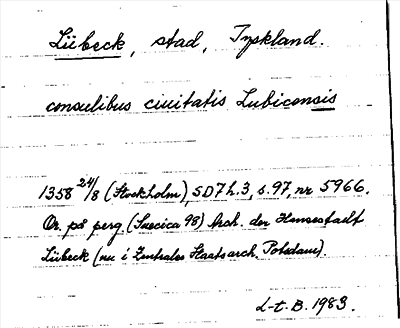 Lübeck, stad, Tyskland.
consulibus ciuitatis Lubicensis
1358 24/8 (Stockholm), SD 7 h. 3, s. 97, nr 5966.
Or. på perg. (Suecica 98) Arch. der Hansestadt
Lübeck (nu i Zentrales Staatsarch. Potsdam).
L-t. B. 1983.